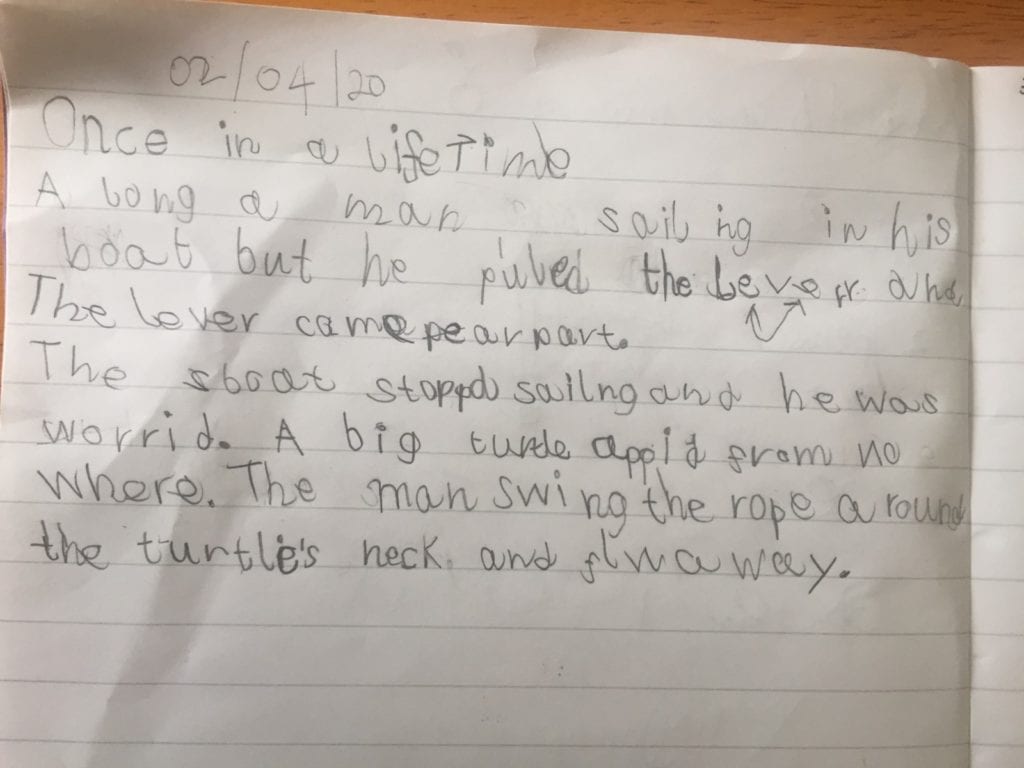 02/04/20
Once in a lifeTime
A long a man sailing in his
boat but he pulled the lever and
The lever came pearpart.
The sboat stoppd sailng and he was
worrid. A big turtle appid from no
where. The man swing the rope around
the turtle's neck and flwaway.